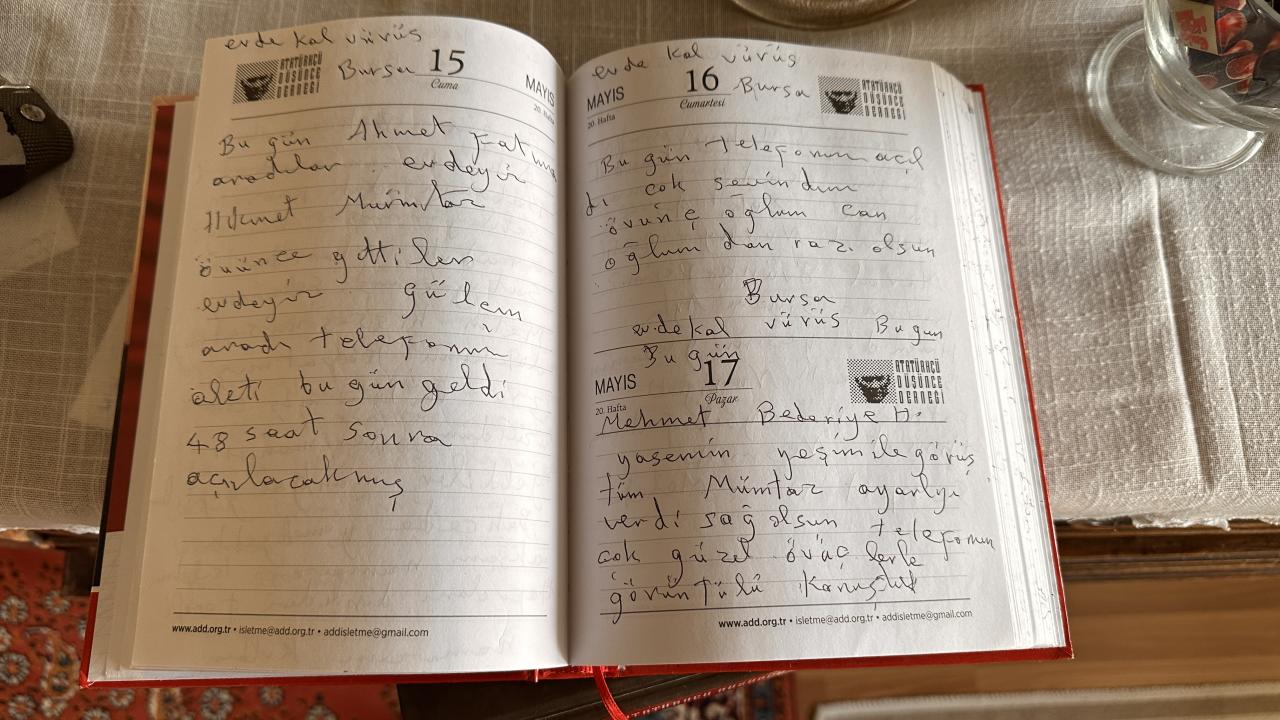 evde kal vürüs
ATATÜRKÇÜ
DÜŞÜNCE
DERNEĞİ
Bursa 15
Cuma
MAYIS
20. Hafta
Bu gün Ahmet Fatma
aradılar evdeyiz
Hikmet Mümtaz
övünce gittiler
evdeyiz gülen
aradı telefonun
aleti bu gün geldi
48 saat sonra
açılacakmış
www.add.org.tr • isletme@add.org.tr • addisletme@gmail.com
evde kal vürüs
MAYIS 16 Bursa
Cumartesi
20. Hafta
ATATÜRKÇÜ
DÜŞÜNCE
DERNEĞİ
Bu gün telefonum açıl
dı cok sevindım
övünç oğlum can
oğlum dan razı olsun
Bursa
evde kal vürüs Bu gun
Bu gün
MAYIS 17
Pazar
20. Hafta
ATATÜRKÇÜ
DÜŞÜNCE
DERNEĞİ
Mehmet Bederiye H.
yasemin yeşim ile görüş
tüm Mümtaz ayarlyı
verdi sağ olsun telefonum
cok güzel övüç lerle
görüntülü Konuştuk
www.add.org.tr • isletme@add.org.tr • addisletme@gmail.com